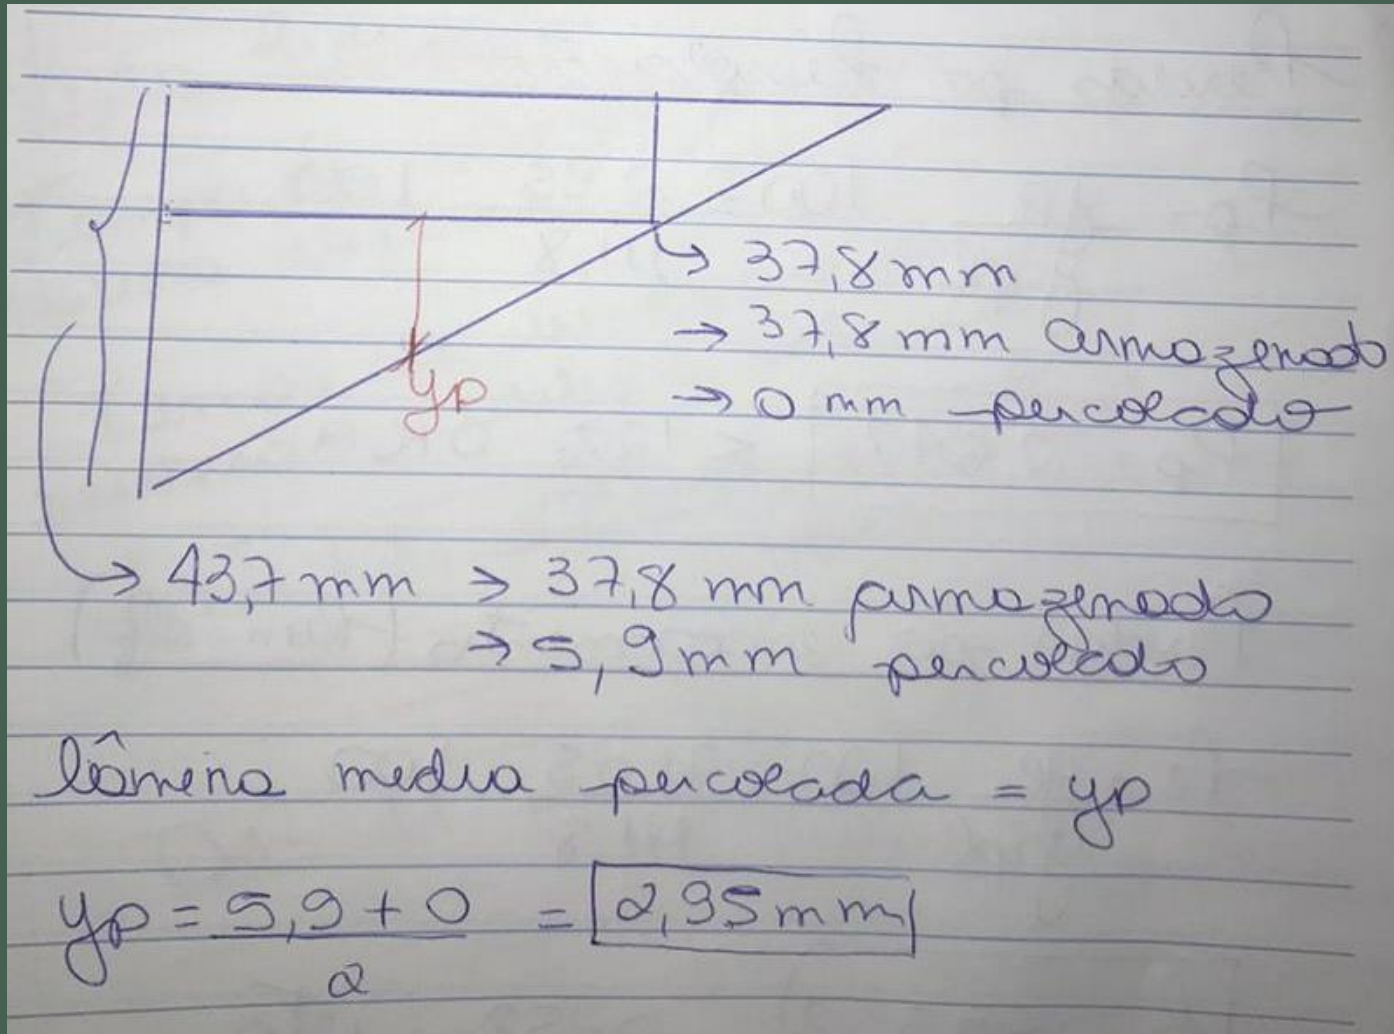 → 37,8 mm
→ 37,8 mm armazenado
→ 0 mm percolado
yp
→ 43,7 mm → 37,8 mm armazenado
→ 5,9 mm percolado
lâmina media percolada = yp
yp = 5,9 + 0 = 2,95 mm
2